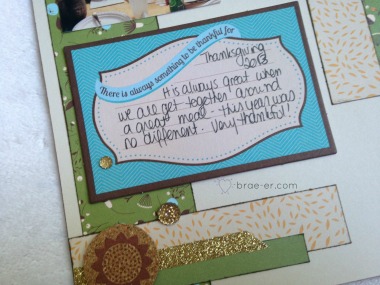 There is always something to be thankful for
Thanksgiving
2013
It is always great when
we all get together around
a great meal - this year was
no different. Very thankful!
brae-er.com